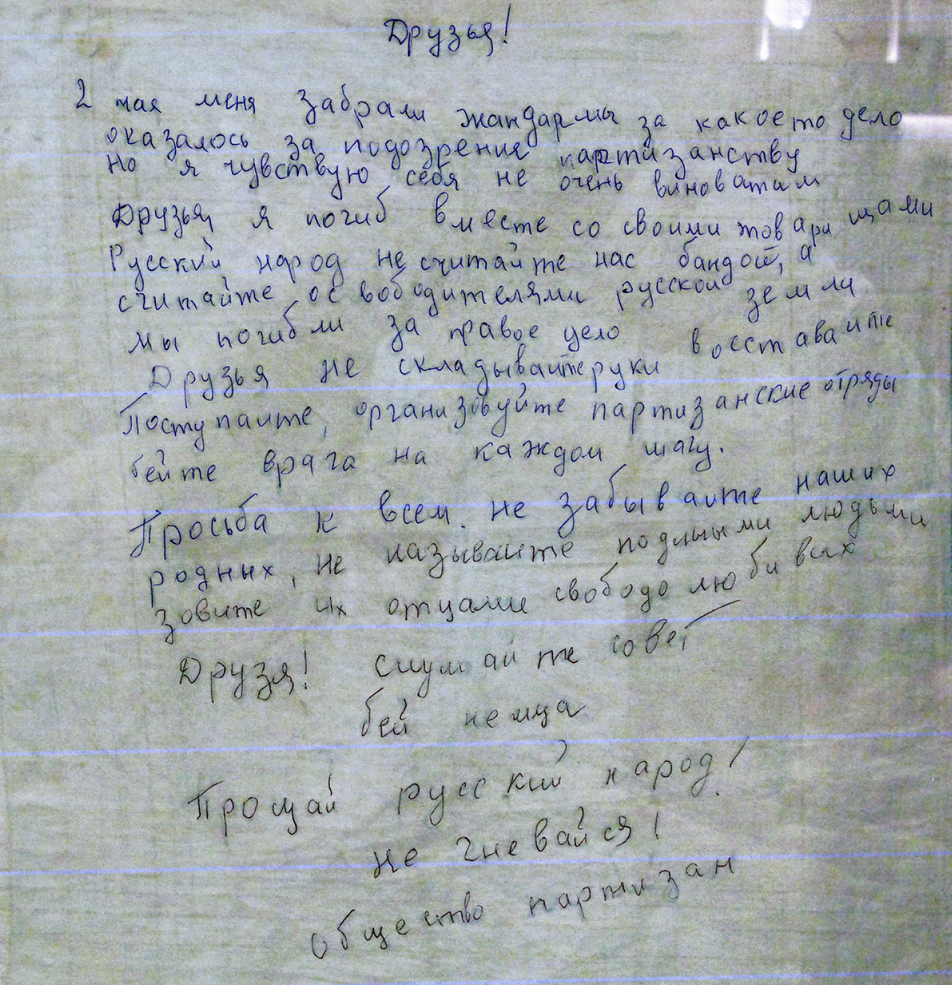 Друзья!
2 мая меня забрали жандармы за какоето дело
оказалось за подозрение партизанству
но я чувствую себя не очень виноватам
Друзья, я погиб вместе со своими товарищами
Русский народ не считайте нас бандой, а
считайте освободителями русской земли
мы погибли за правое дело восставайте
Друзья не складывайте руки
Поступайте, организовуйте партизанские отряды
бейте врага на каждом шагу.
Просьба к всем. не забывайте наших
родных, не называйте подлыми людьми
зовите их отцами свободолюбивых
Друзя! слушайте совет
бей немца
Прощай русский народ!
не гневайся!
общество партизан